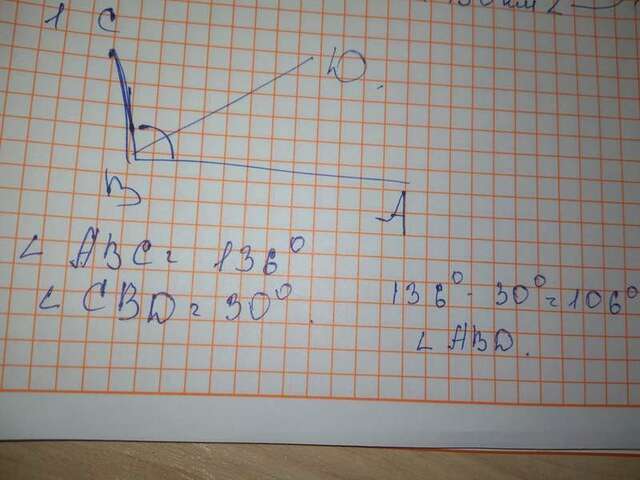 1 C
D.
B
A
∠ ABC = 136°
∠ CBD = 30°.
136° - 30° = 106°
∠ ABD.